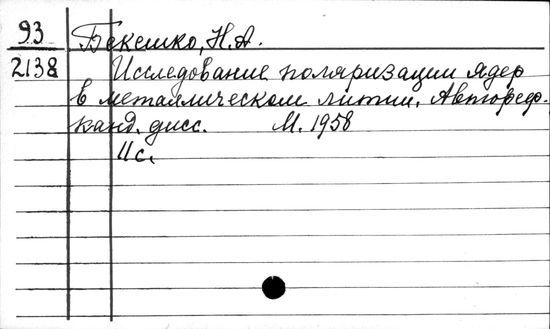 93 Бекешко, Н.А.
2138 Исследование поляризации ядер
в металлическом литии. Автореф.
канд. дисс. М. 1958
11 с.